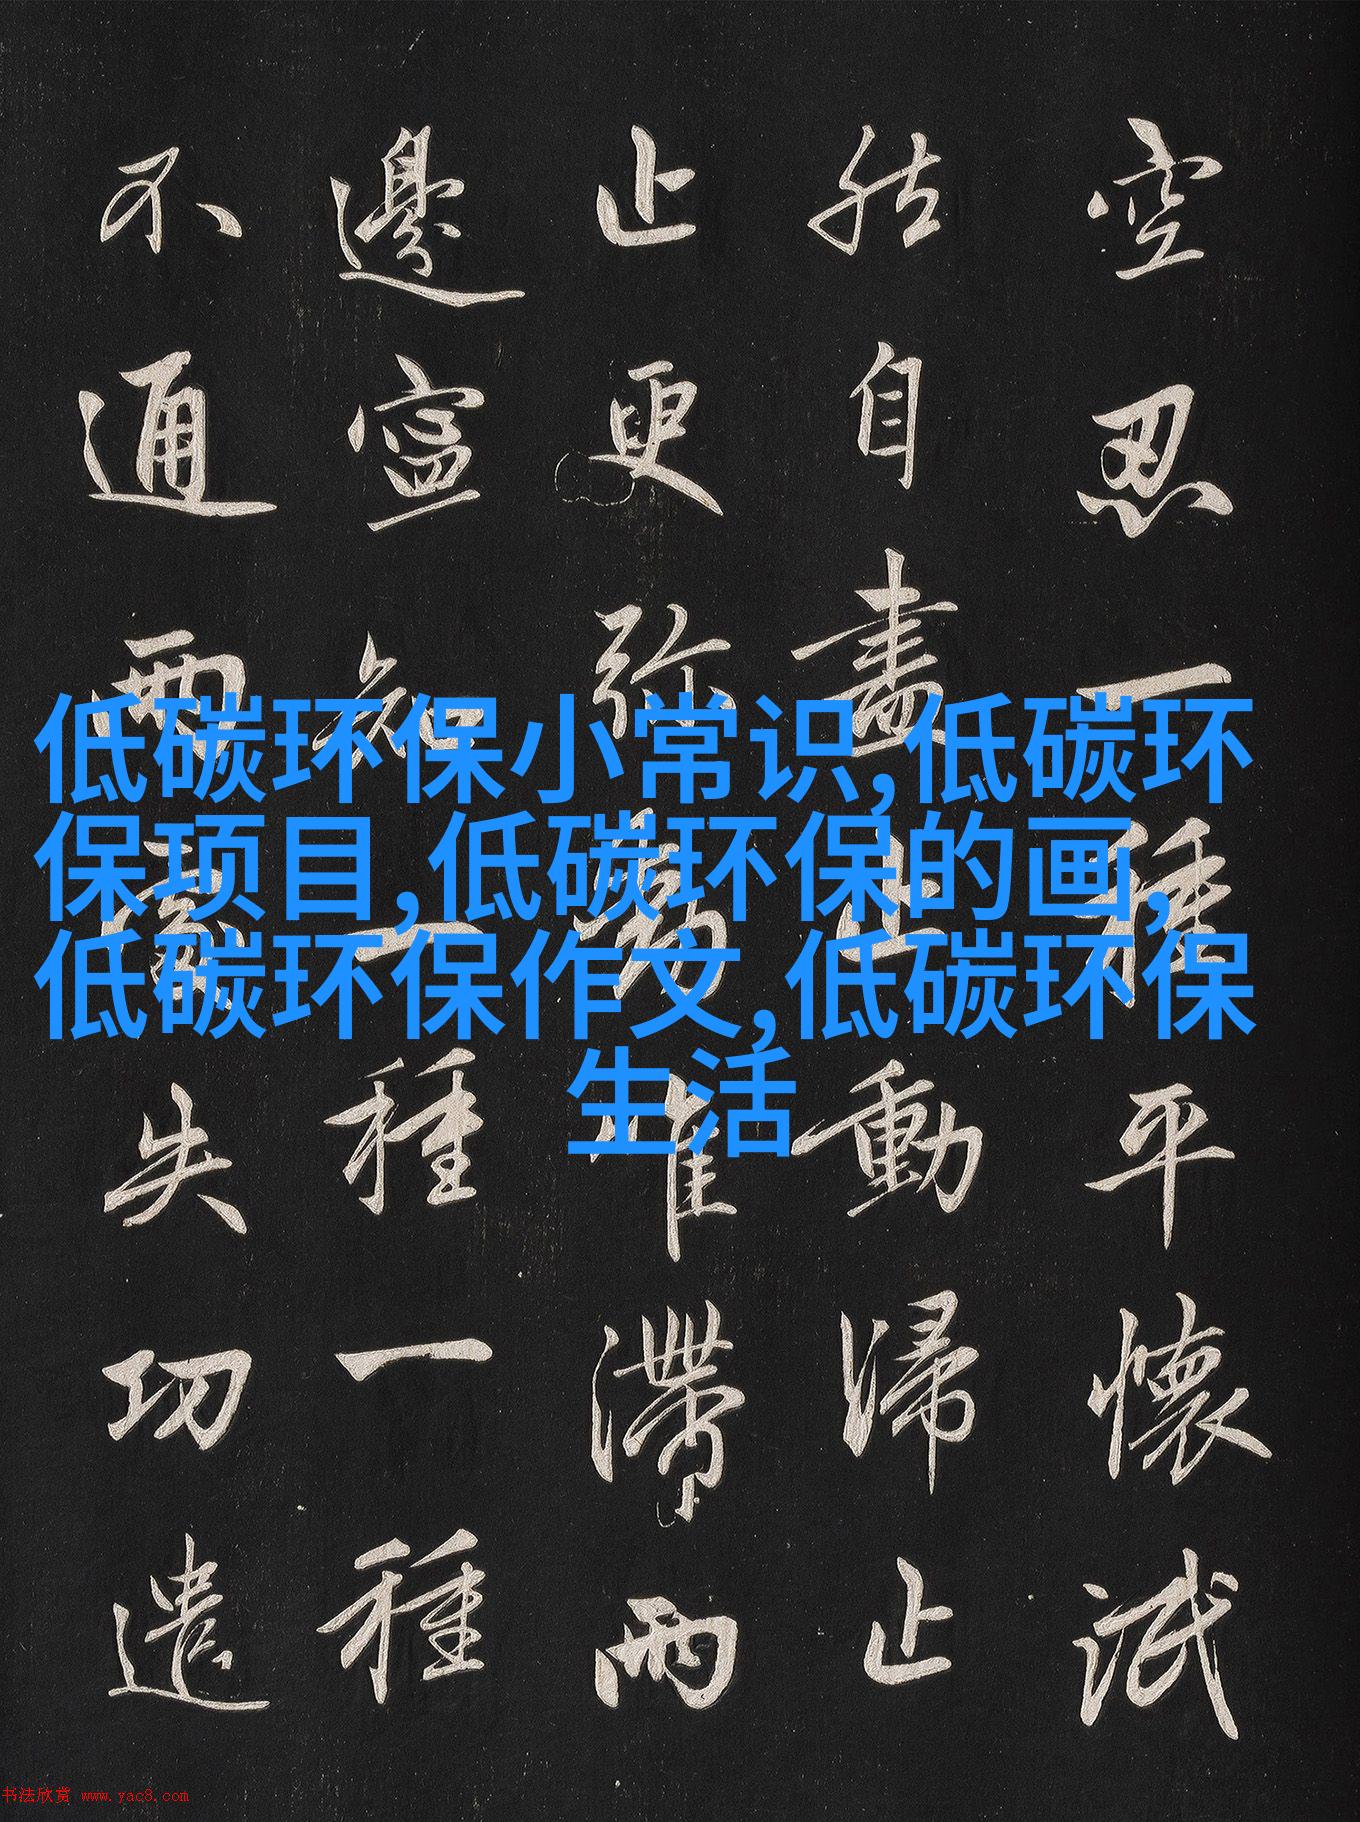 空忍一種平懷泯
然自盡止動歸止
止更彌動唯滯兩
邊寧知一種一種
不通兩處失功遣
低碳环保小常识,低碳环
保项目,低碳环保的画,
低碳环保作文,低碳环保
生活
书法欣赏 www.yac8.com